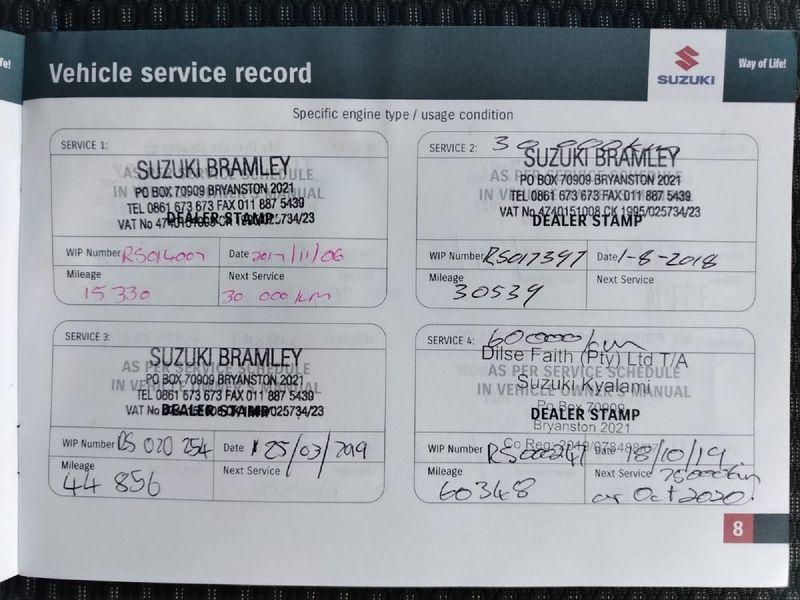 fe!
Vehicle service record
SUZUKI
Way of Life!
Specific engine type / usage condition
SERVICE 1:
SUZUKI BRAMLEY
AS PER SERVICE SCHEDULE
PO BOX 70909 BRYANSTON 2021
IN VEHICLE OWNER'S MANUAL
TEL 0861 673 673 FAX 011 887 5439
DEALER STAMP
VAT No 4740151008 CK 1995/025734/23
WIP Number RS014007 Date 2017/11/06
Mileage 15 330
Next Service 30 000 km
SERVICE 2: 30 000km
SUZUKI BRAMLEY
AS PER SERVICE SCHEDULE
PO BOX 70909 BRYANSTON 2021
IN VEHICLE OWNER'S MANUAL
TEL 0861 673 673 FAX 011 887 5439
VAT No 4740151008 CK 1995/025734/23
DEALER STAMP
WIP Number RS017397 Date 1-8-2018
Mileage 30539
Next Service
SERVICE 3:
SUZUKI BRAMLEY
AS PER SERVICE SCHEDULE
PO BOX 70909 BRYANSTON 2021
IN VEHICLE OWNER'S MANUAL
TEL 0861 673 673 FAX 011 887 5439
VAT No
DEALER STAMP
025734/23
WIP Number RS 020 254 Date 25/03/2019
Mileage 44 856
Next Service
SERVICE 4: 60000km
Dilse Faith (Pty) Ltd T/A
AS PER SERVICE SCHEDULE
Suzuki Kyalami
IN VEHICLE OWNER'S MANUAL
Po Box 70909
DEALER STAMP
Bryanston 2021
Co Reg:
WIP Number RS000247 Date 18/10/19
Mileage 60348
Next Service 75000km
or Oct 2020
8